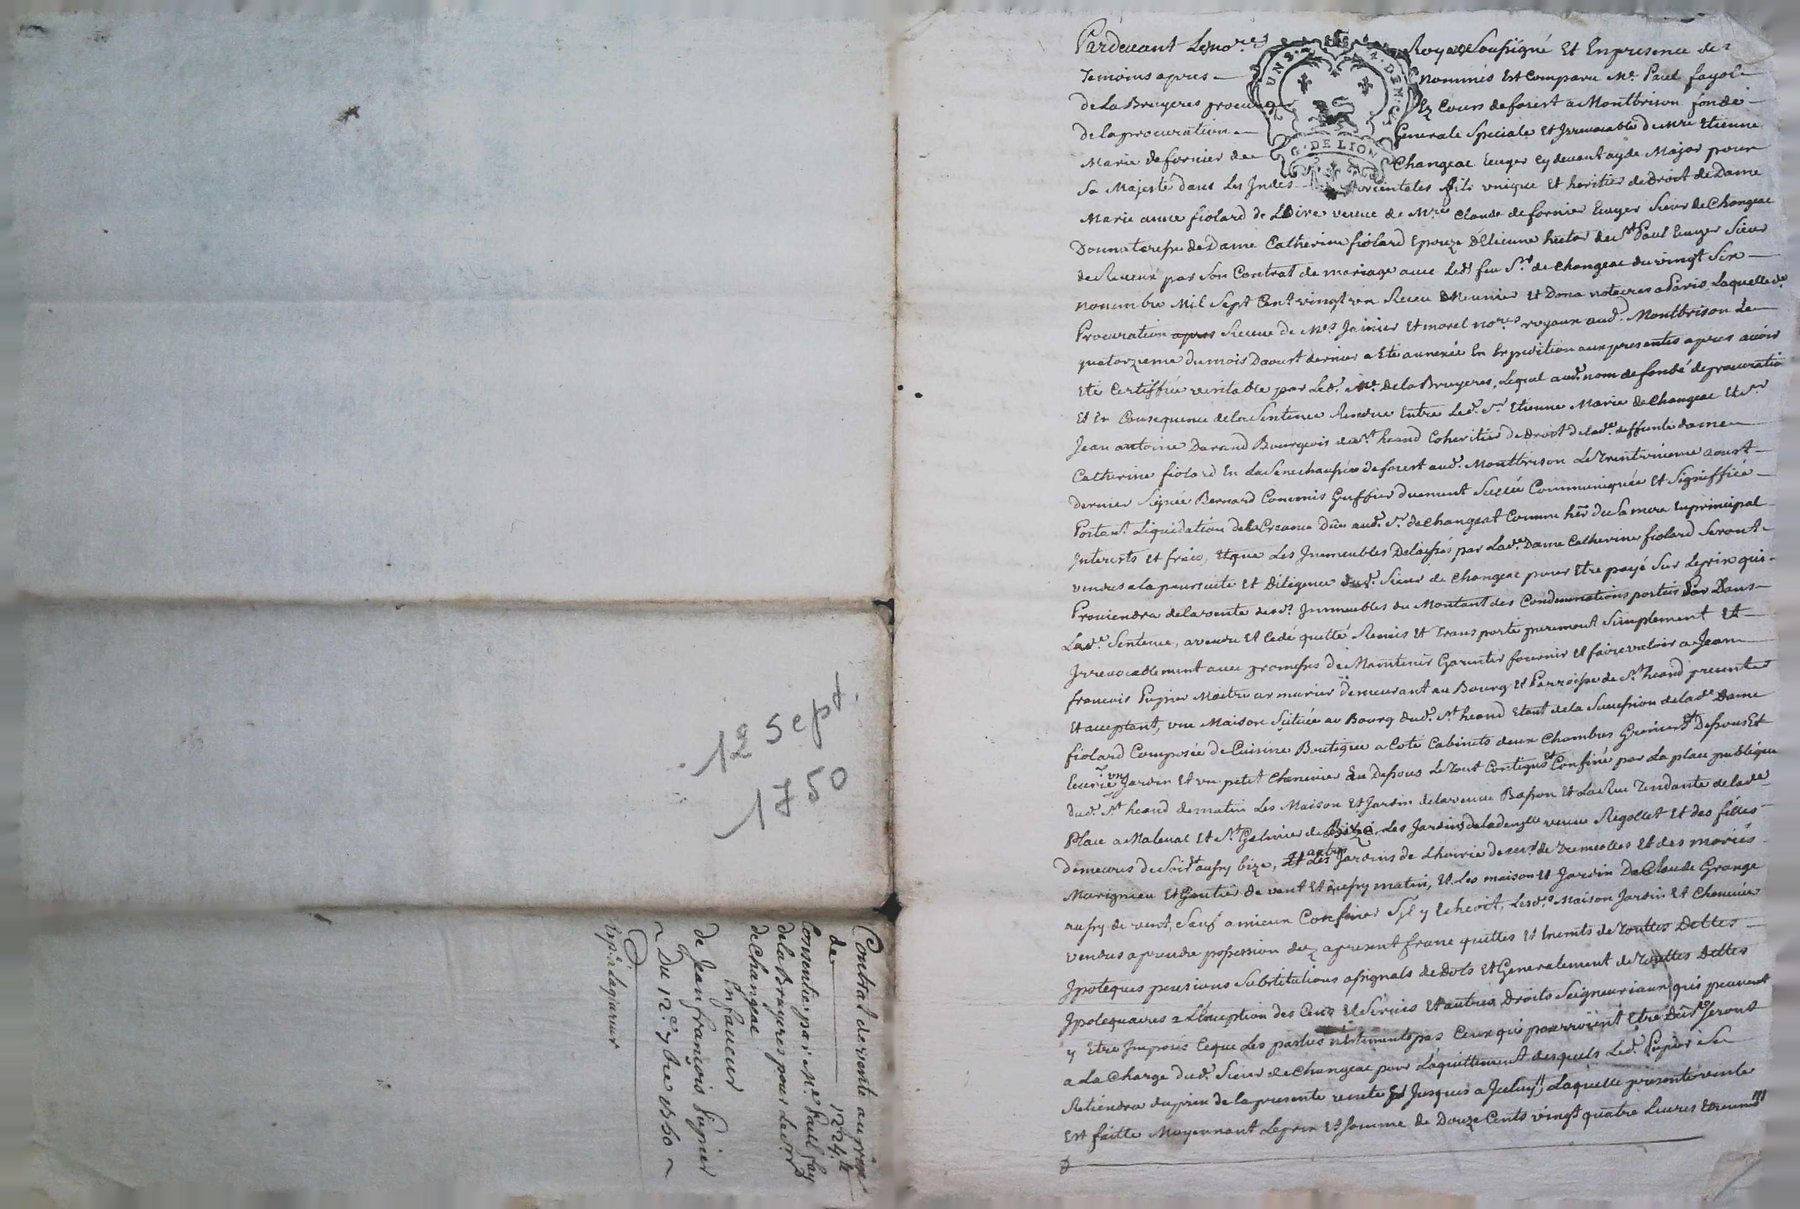 12 sept.
1750
Contrat de vente au prix
de 1224.lt
Consentie par Me. Paul fay
de la Bruyeres pour Le Sr.
de Changeac
En faveur
de Jean françois Pupier
Du 12e. 7bre 1750
Pardevant Le nore. Royal Soussigné Et En presence des
Temoins apres nommés Est Comparu Me. Paul fayol
de La Bruyeres procureur Ez Cours de forest a Montbrison fondé
de la procuration Generale Speciale Et Irrevocable de Mre Etienne
Marie de fornier de Changeac Ecuyer Cy devant ayde Major pour
Sa Majesté dans Les Indes orientales fils unique Et heritier de Droit de Dame
Marie anne fiolard de Loire veuve de Mre Claude de fornier Ecuyer Sieur de Changeac
Donnataresse de Dame Catherine fiolard Epouze d'Etienne hector de St Paul Ecuyer Sieur
de par Son Contrat de mariage avec Ledt feu Sr. de Changeac du vingt Six
novembre Mil Sept Cent vingt un Receu Meunier Et Dona notaires a Paris Laquelle de
Procuration apres Receue de Mes Jainier Et morel nores royaux aud. Montbrison Le
quatorzieme du mois Daoust dernier a Ete annexée En Expedition aux presentes apres avoir
Eté Certiffiée veritable par Led. Me. de la Bruyeres, Lequel aud. nom de fondé de procuration
Et En Consequence de la Sentence Rendue Entre Led. Sr. Etienne Marie de Changeac Et Sr
Jean antoine Durand Bourgeois de St heand Coheritier de Droit de lade. deffunte dame
Catherine fiolard En La Senechaussée de forest aud. Montbrison Le Trentunieme aoust
dernier Signée Bernard Commis Greffier duement Scellée Communiquée Et Signiffiée
Portant Liquidation de la Creance Düe aud. Sr. de Changeat Comme her de Sa mere En principal
Interests Et frais, Et que Les Immeubles Delaissés par Lade. Dame Catherine fiolard Seront
vendus a la poursuite Et Diligence dud. Sieur de Changeac pour Etre payé Sur Le prix qui
Proviendra de la vente desds. Immeubles du Montant des Condemnations portées Dans
Lade. Sentence, a vendu Et Cedé quitté Remis Et Transporté purement Simplement Et
Irrevocablement avec promesse de Maintenir Garentir fournir Et faire valoir a Jean
francois Pupier Maitre armurier demeurant au Bourg Et Parroisse de St. heand present
Et acceptant, une Maison Scituée au Bourg dud. St heand Etant de la Succession de lade Dame
fiolard Composée de Cuisine Boutique a Coté Cabinets deux Chambres Greniers Dessous Et
Ecurie un Jardin Et un petit Chenevier Au Dessous Le Tout Contigus Et Confiné par La place publique
dud. St heand de matin Les Maison Et Jardin de la veuve Basson Et La Rue Tendante de lade
Place a Maleval Et St Galmier de Bize, Les Jardins de la demlle veuve Rigollet Et des filles
demeures de Soir aussy bize, Et Les autres Jardins de L'hoirie de Tremeolles Et des mariés
Marignieu Et Gautier de vent Et aussy matin, Et Les maison Et Jardin De Claude Grange
aussy de vent, Sauf a mieux Confiner S'Il y Echeoit, Lesds. Maison Jardin Et Chenevier
vendus a prendre possession dez apresent franc quittes Et Exemts de Touttes Dettes
Ipoteques pensions Substitutions assignats de Dots Et Generalement de Touttes Dettes
Ipotequaires a L'Exception des Cens Et Servis Et autres Droits Seigneuriaux qui peuvent
y Etre Imposés Ce que Les parties n'Estiments pas Ceux qui pourroient Etre Dûs Seront
a La Charge dud. Sieur de Changeac pour L'aquittement desquels Led. Pupier Se
Retiendra du prix de la presente vente Jusques a Laquelle presente vente
Est faitte Moyennant Le prix Et Somme de Douze Cents vingt quatre Livres